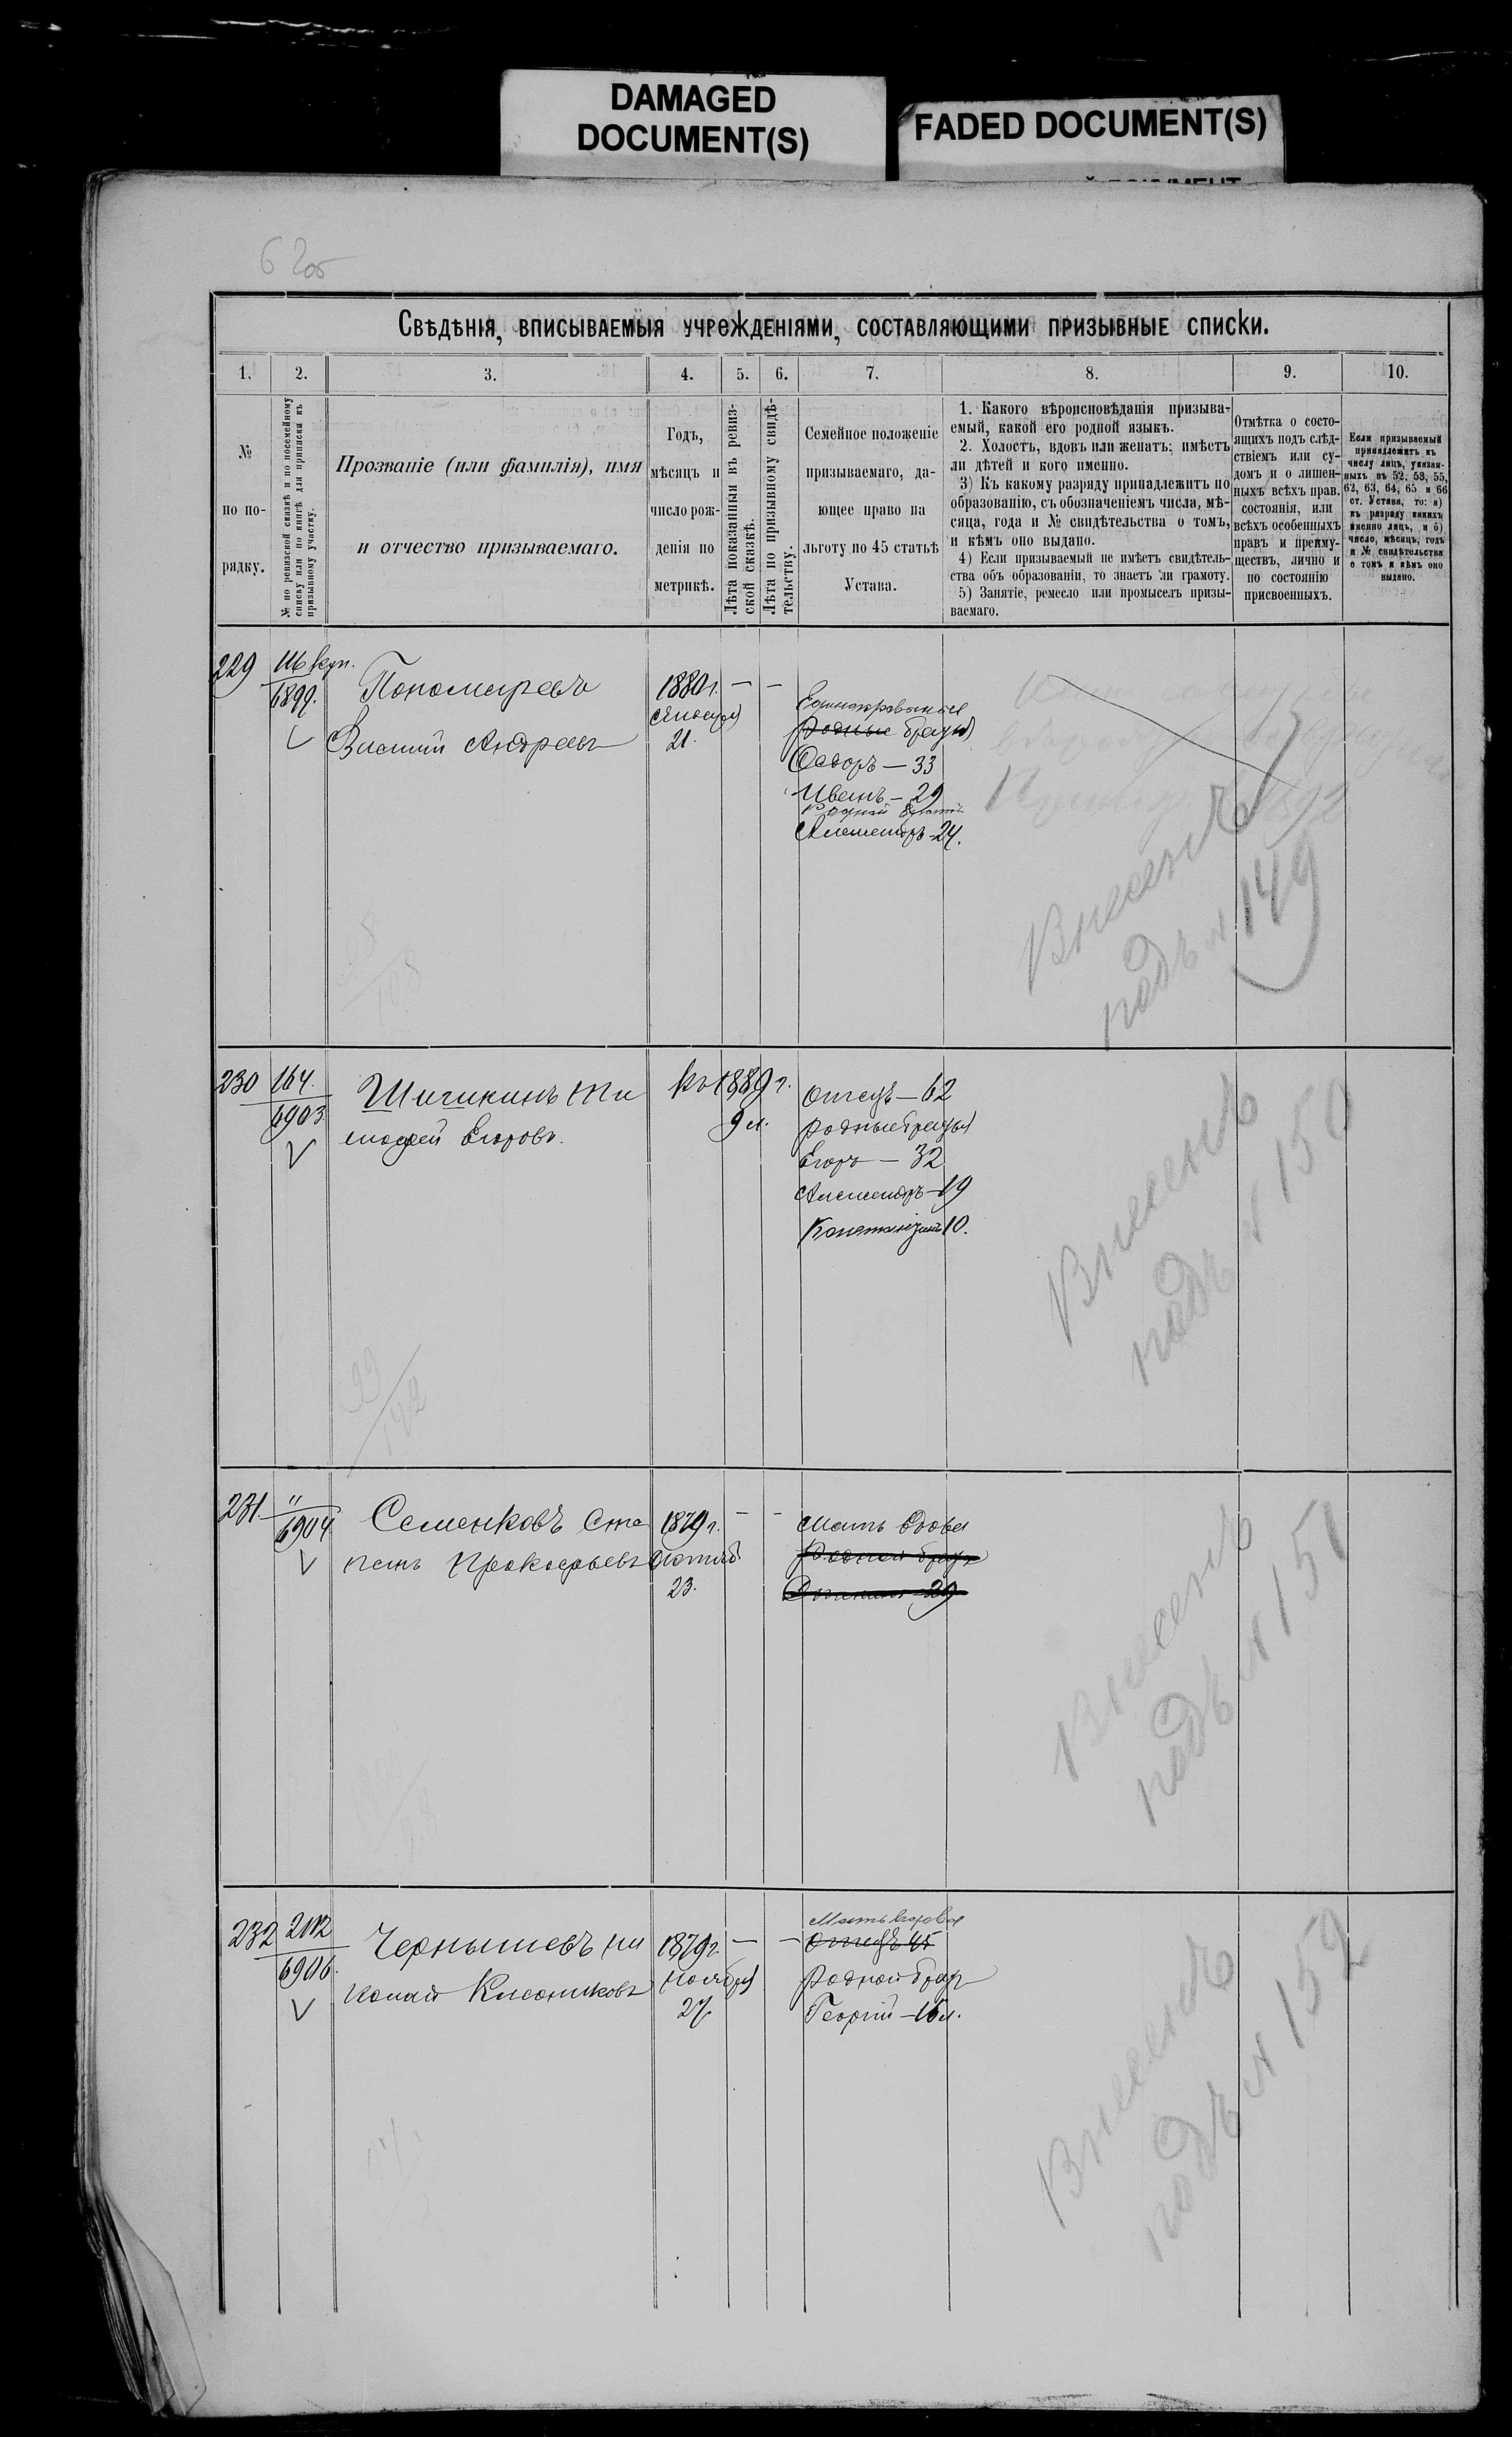 DAMAGED
DOCUMENT(S)
FADED DOCUMENT(S)
62об
Свѣдѣнія, вписываемыя учрежденіями, составляющими призывные списки.
1. 2. 3. 4. 5. 6. 7. 8. 9. 10.
№
по по-
рядку.
№ по ревизской сказкѣ и по посемейному
списку или по книгѣ для приписки къ
призывному участку.
Прозваніе (или фамилія), имя
и отчество призываемаго.
Годъ,
мѣсяцъ и
число рож-
денія по
метрикѣ.
Лѣта показанныя въ ревиз-
ской сказкѣ.
Лѣта по призывному свидѣ-
тельству.
Семейное положеніе
призываемаго, да-
ющее право на
льготу по 45 статьѣ
Устава.
1. Какого вѣроисповѣданія призыва-
емый, какой его родной языкъ.
2. Холостъ, вдовъ или женатъ; имѣетъ
ли дѣтей и кого именно.
3) Къ какому разряду принадлежитъ по
образованію, съ обозначеніемъ числа, мѣ-
сяца, года и № свидѣтельства о томъ,
и кѣмъ оно выдано.
4) Если призываемый не имѣетъ свидѣтель-
ства объ образованіи, то знаетъ ли грамоту.
5) Занятіе, ремесло или промыселъ призы-
ваемаго.
Отмѣтка о состо-
ящихъ подъ слѣд-
ствіемъ или су-
домъ и о лишен-
ныхъ всѣхъ прав.
состоянія, или
всѣхъ особенныхъ
правъ и преиму-
ществъ, лично и
по состоянію
присвоенныхъ.
Если призываемый
принадлежитъ къ
числу лицъ, указан-
ныхъ въ 52, 53, 55,
62, 63, 64, 65 и 66
ст. Устава, то: а)
къ разряду какихъ
именно лицъ, и б)
число, мѣсяцъ, годъ
и № свидѣтельства
о томъ и кѣмъ оно
выдано.
229
116 куп.
6899.
Пономаревъ
Василий Андреевъ
1880 г.
Января
21.
— —
Единокровные
родные братья
Федоръ — 33
Иванъ — 29
Родной братъ
Александръ - 24.
Внесенъ
подъ № 149
230
164.
6903
Шишкинъ Ти
мофей Егоровъ.
къ 1889 г.
9 л.
отецъ — 62
родные братья
Егоръ — 32
Александръ — 19
Константинъ 10.
Внесенъ
подъ № 150
99
142
231
"
6904
Семенковъ Сте
панъ Прокофьевъ
1879 г.
Октяб
23.
- -
Мать вдова
Родной братъ
29
Внесенъ
подъ № 151
232
2112
6906.
Чернышевъ Ни
колай
1879 г.
Ноября
27.
— —
Мать вдова
отецъ 45
родной братъ
Георгій — 16 л.
Внесенъ
подъ № 152